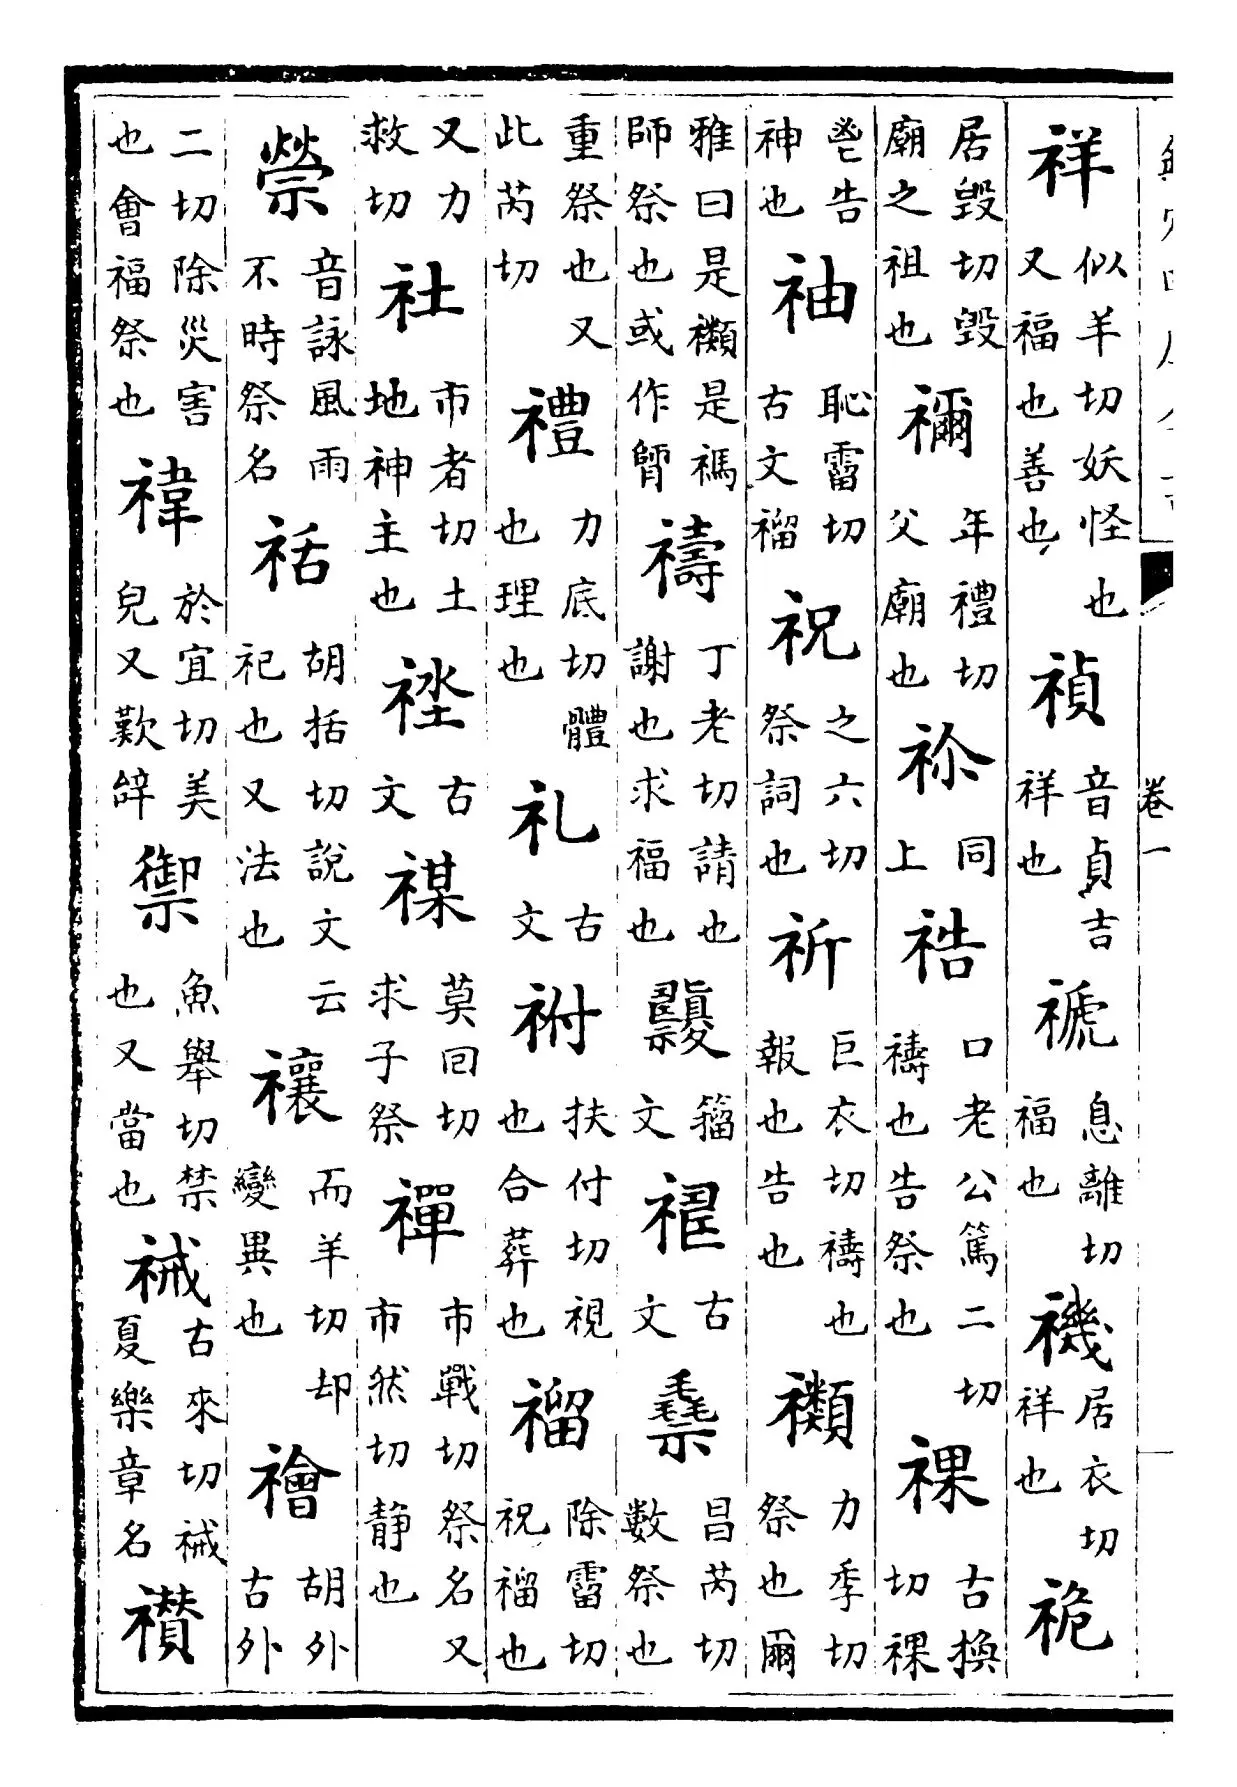 卷一
祥似羊切妖怪也又福也善也禎音貞吉祥也禠息離切福也禨居衣切祥也祪
居毁切毁廟之祖也禰年禮切父廟也祢同上祰口老公篤二切禱也告祭也祼古換切祼
鬯告神也䄂恥霤切古文𥛅祝之六切祭詞也祈巨衣切禱也報也告也禷力季切祭也爾
雅曰是禷是禡師祭也或作禱丁老切請也謝也求福也籀文古文昌芮切數祭也
重祭也又此芮切禮力底切體也理也礼古文祔扶付切視也合葬也𥛅除霤切祝𥛅也
又力救切社市者切土地神主也古文禖莫回切求子祭禪市戰切祭名又市然切静也
禜音詠風雨不時祭名䄆胡括切說文云祀也又法也禳而羊切却變異也禬胡外古外
二切除災害也會福祭也禕於宜切美皃又歎辝禦魚舉切禁也又當也祴古來切祴夏樂章名禶